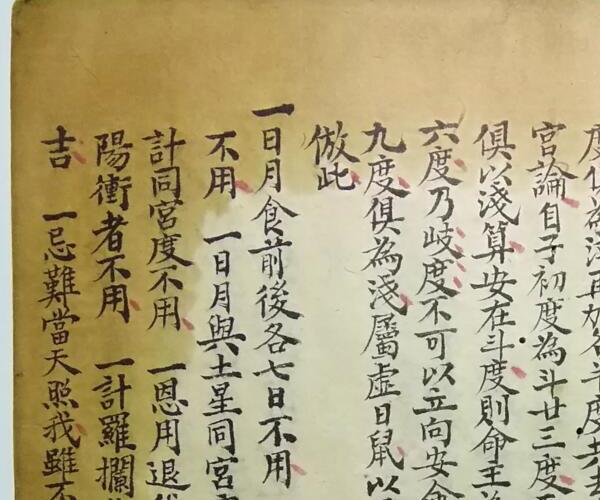 度俱為淺再加各斗度
宮論自子初度為斗廿三度
俱以淺算安在斗度則命主
六度乃岐度不可以立向安命
九度俱為淺屬虛日鼠以
倣此
一日月食前後各七日不用
不用　一日月與土星同宮
計同宮度不用　一恩用退
陽衝者不用　一計羅攔
吉　一忌難當天照我雖不